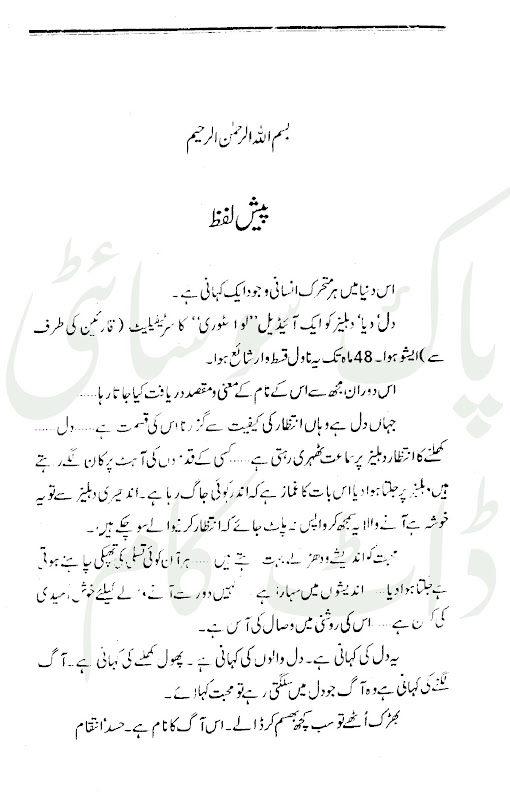 بسم اللہ الرحمٰن الرحیم
پیش لفظ
اس دنیا میں ہر متحرک انسانی وجود ایک کہانی ہے۔
دل، دیا، دہلیز کو ایک آئیڈیل ”لو اسٹوری“ کا سرٹیفیکیٹ (قارئین کی طرف
سے) ایشو ہوا۔ 48 ماہ تک یہ ناول قسط وار شائع ہوا۔
اس دوران مجھ سے اس کے نام کے معنی و مقصد دریافت کیا جاتا رہا.....
جہاں دل ہے وہاں انتظار کی کیفیت سے گزرنا اس کی قسمت ہے..... دل .....
کھلنے کا انتظار دہلیز پر سماعت ٹھہری رہتی ہے..... کسی کے قدموں کی آہٹ پر کان لگے رہتے
ہیں، دہلیز پر جلتا ہوا دیا اس بات کا غماز ہے کہ اندر کوئی جاگ رہا ہے۔ اندھیری دہلیز سے تو یہ
خدشہ ہے آنے والا یہ سمجھ کر واپس نہ پلٹ جائے کہ انتظار کرنے والے سو چکے ہیں۔
محبت کو اندیشے و دھڑکے ..... ہر آن کوئی تسلی کی تھپکی چاہئے ہوتی
ہے جلتا ہوا دیا..... اندیشوں میں سہارا ہے ..... کہیں دور سے آنے والے کیلئے خوش امیدی
کی کرن ہے..... اس کی روشنی میں وصال کی آس ہے۔
یہ دل کی کہانی ہے۔ دل والوں کی کہانی ہے۔ پھول کھلنے کی کہانی ہے۔ آگ
لگنے کی کہانی ہے وہ آگ جو دل میں سلگتی رہے تو محبت کہلائے۔
بھڑک اُٹھے تو سب کچھ بھسم کر ڈالے۔ اس آگ کا نام ہے۔ حسد، انتقام
پاک سوسائٹی
ڈاٹ کام